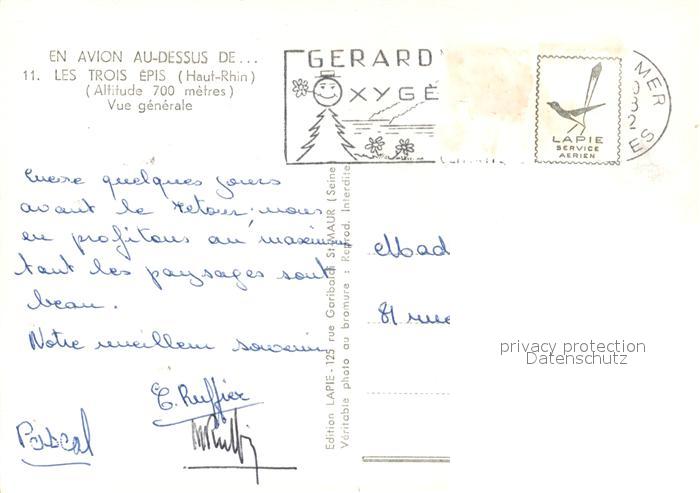 EN AVION AU-DESSUS DE...
11. LES TROIS ÉPIS (Haut-Rhin)
(Altitude 700 mètres)
Vue générale
GERARD
OXYGÉ
MER
LAPIE
SERVICE
AERIEN
Encore quelques jours
avant le retour. nous
en profitons au maximum
tant les paysages sont
beau.
Notre meilleur souvenir
E. Ruffier
Pascal
Edition LAPIE - 125 rue Garibaldi St-MAUR (Seine
Véritable photo au bromure : Reprod. Interdite
Mad
81 rue
privacy protection
Datenschutz